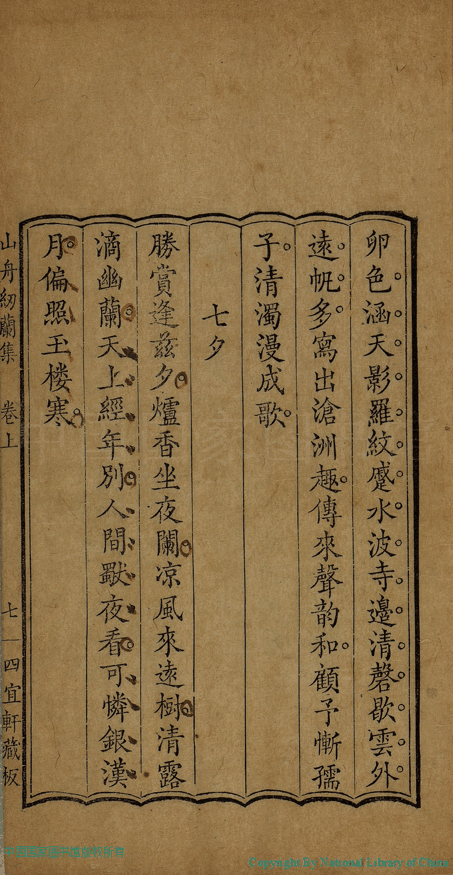 卵色涵天影羅紋蹙水波寺邊清磬歇雲外
遠帆多寫出滄洲趣傳來聲韵和顧予慚孺
子清濁漫成歌
七夕
勝賞逢茲夕爐香坐夜闌凉風來遠樹清露
滴幽蘭天上經年別人間獸夜看可憐銀漢
月偏照玉楼寒
山舟紉蘭集 卷上 七 四宜軒藏板
Copyright By National Library of China